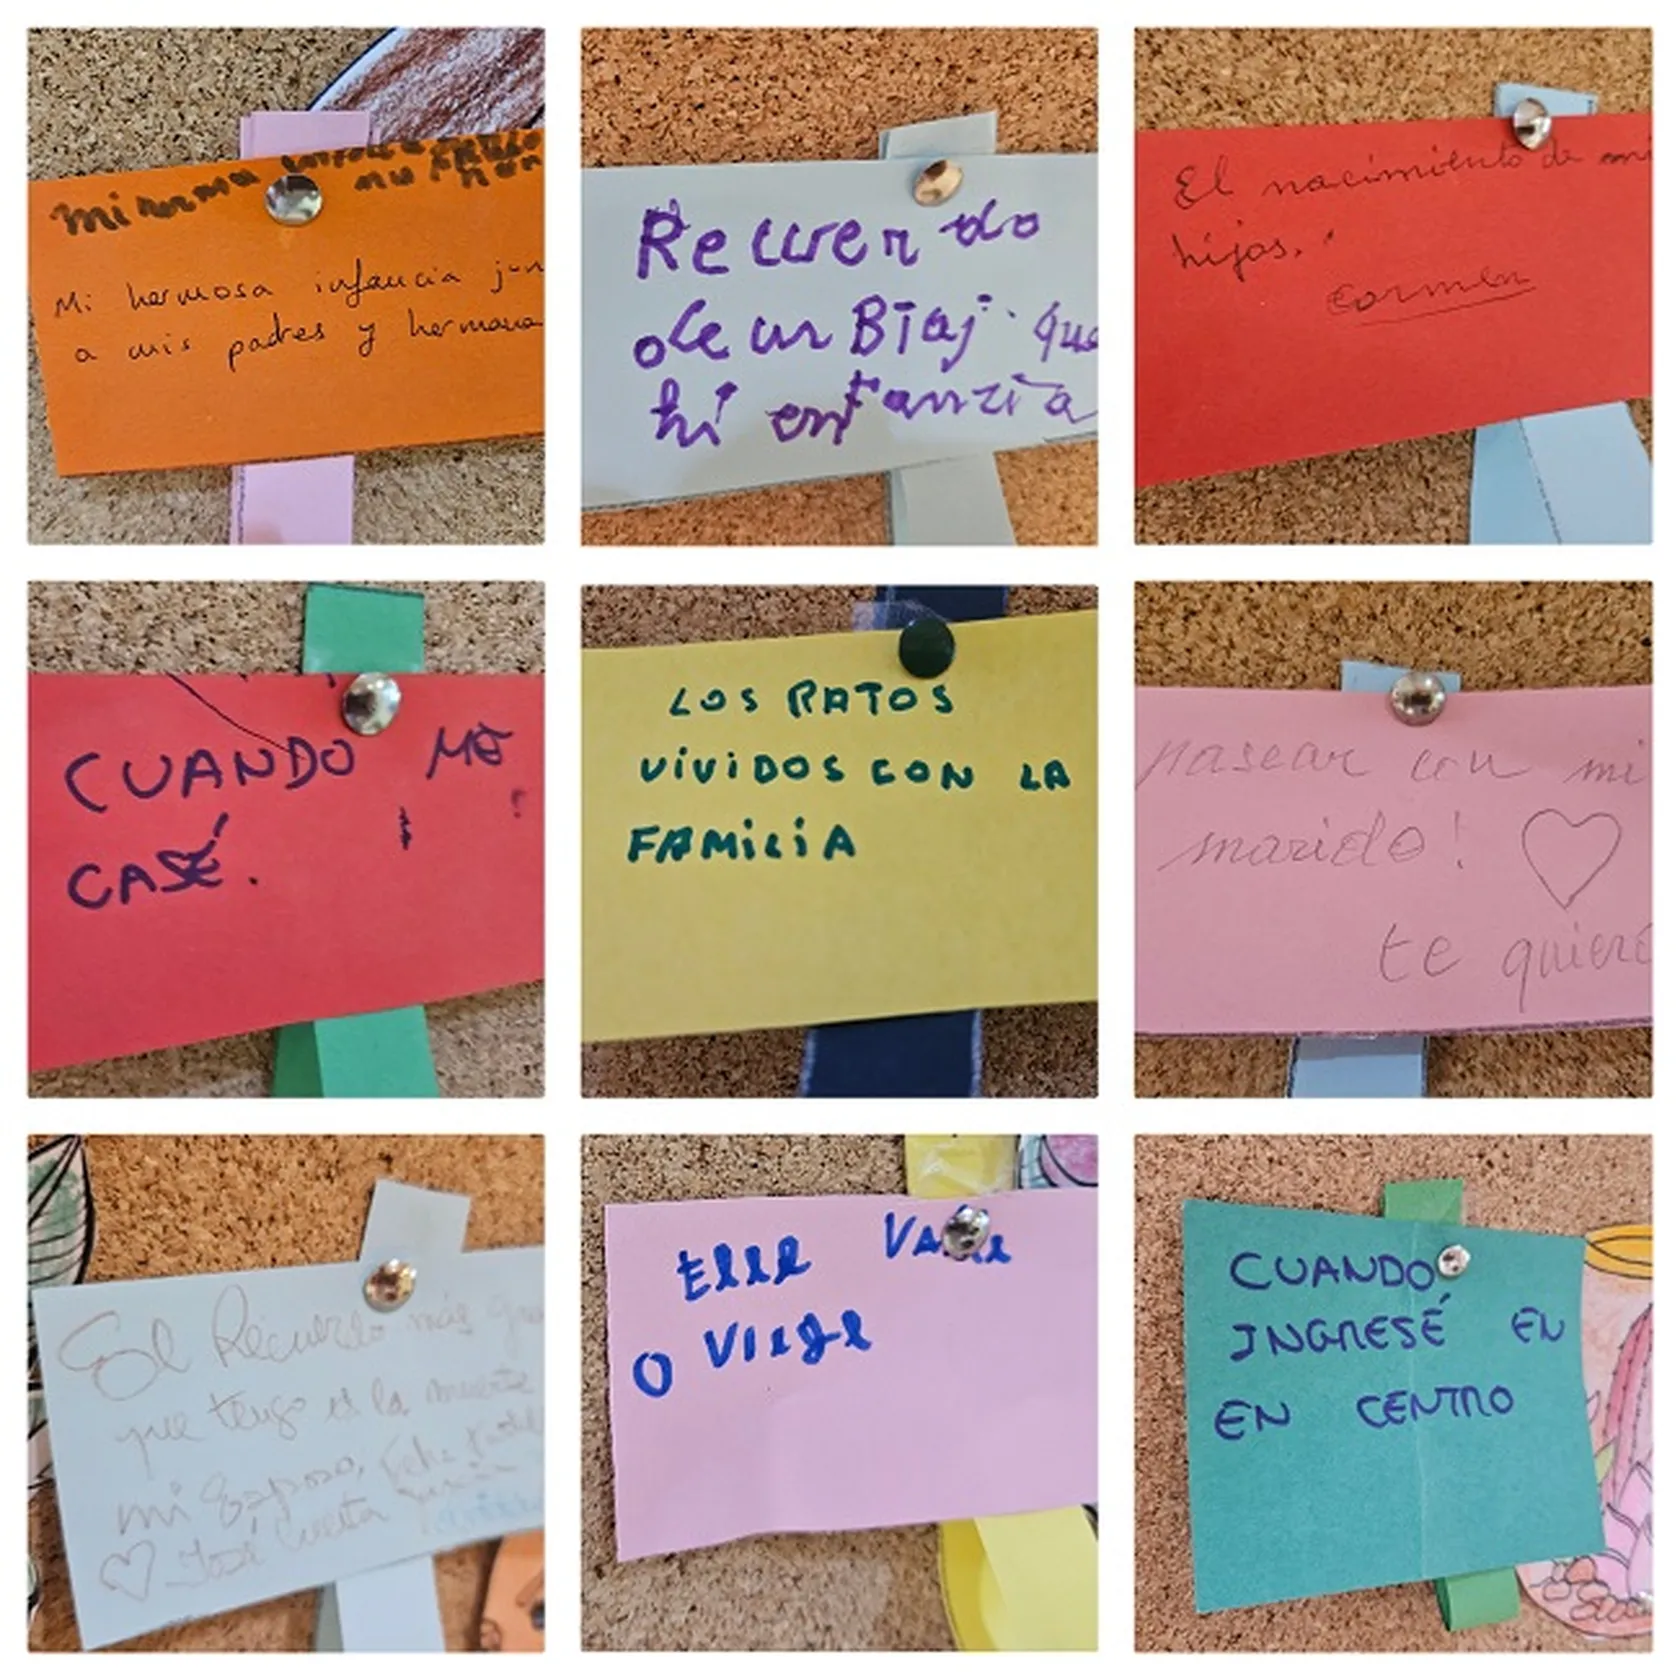 mi
Mi hermosa infancia jun
a mis padres y hermana
Recuerdo
de un Biaj que
hi en Tanzia
El nacimiento de mi
hijas.
Carmen
CUANDO ME
CASÉ.
LOS RATOS
ViViDOS CON LA
FAMiLiA
pasear con mi
marido!
te quiero
El Recuerdo más
que tengo es la muerte
mi Esposo,
José Cuesta
O Viaje
CUANDO
INGRESÉ EN
EN CENTRO